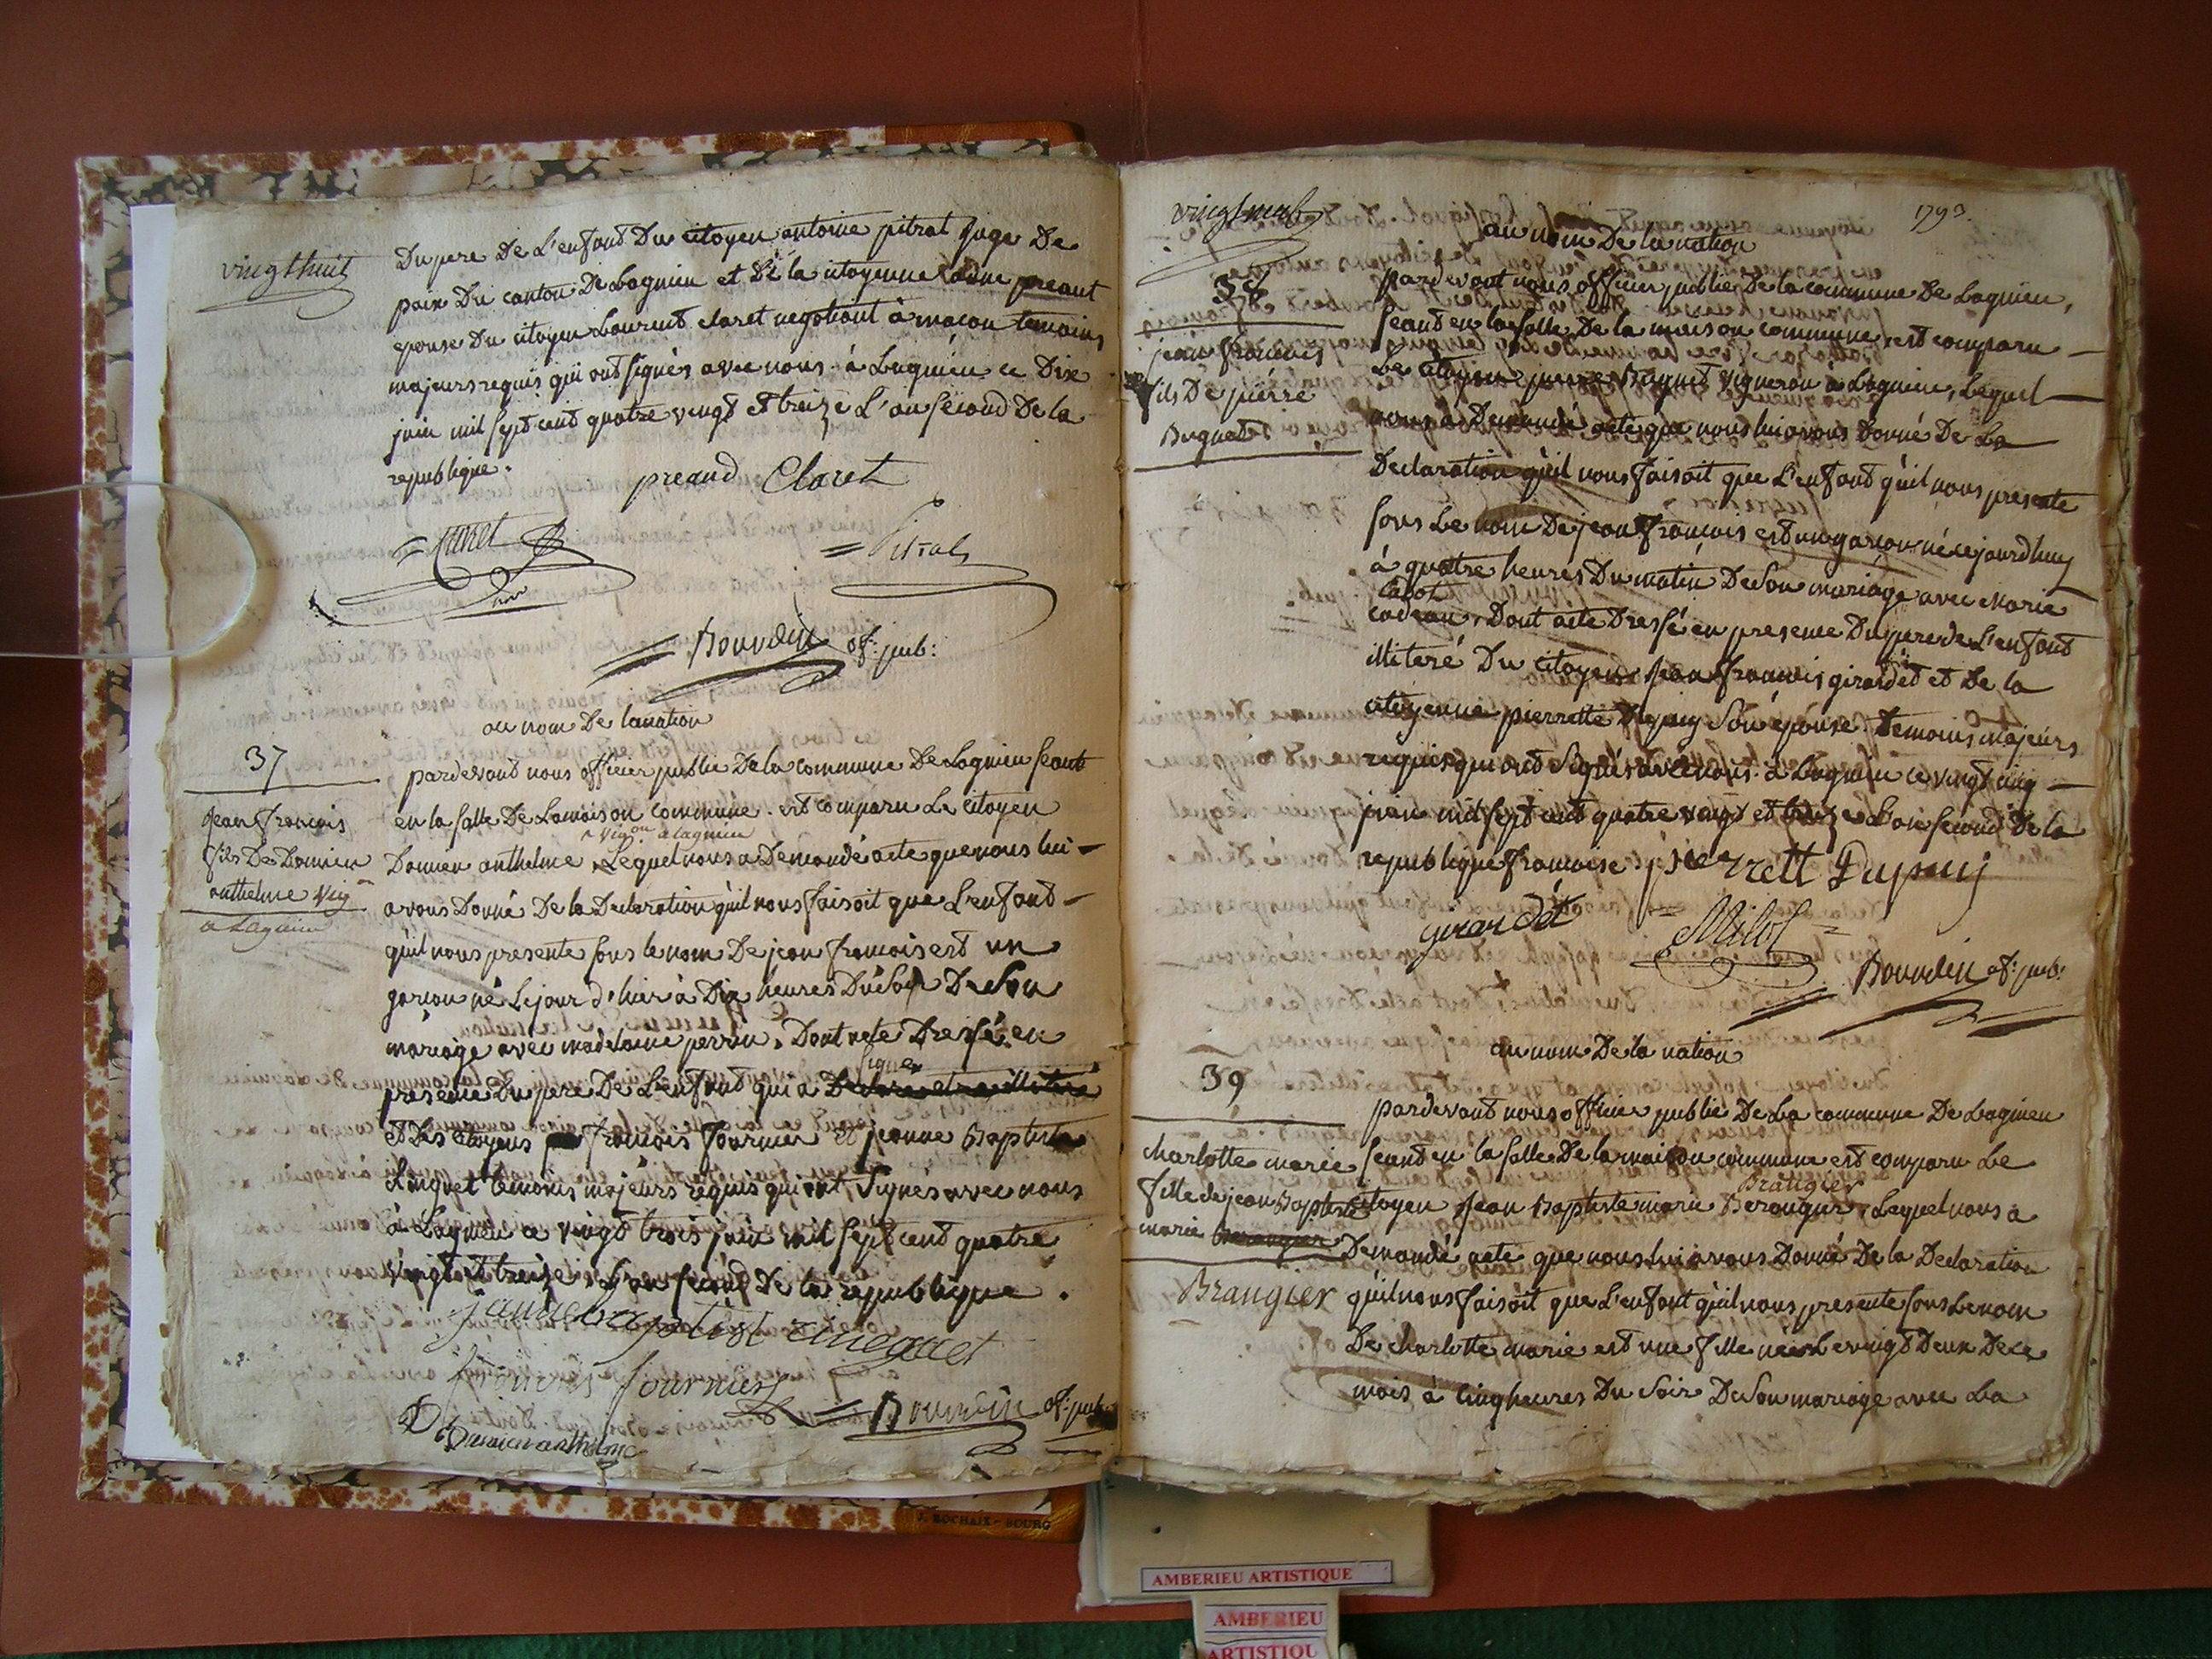 vingt huit
Du pere De L'enfand Du citoyen antoine pitrat Juge De
paix Du canton De Lagnieu et De la citoyenne preaut
epouse Du citoyen Laurend Claret negotiant à macon temoins
majeurs requis qui ont signés avec nous à Lagnieu ce Dix
juin mil sept cent quatre vingt et treize L'an second De la
republique.
preaud Claret
Pitrat
Bourdin of: pub:
au nom De la nation
37
Jean francois
fils De Damien
anthelme vign
a Lagnieu
pardevand nous officier public De la commune De Lagnieu seant
en la salle De la maison commune. est comparu Le citoyen
vign à lagnieu
Damien anthelme Lequel nous a Demandé acte que nous lui
avons Donné De la Declaration qu'il nous faisoit que L'enfand
qu'il nous presente sous le nom De jean francois est un
garcon né Le jour d'hier à Dix heures Du Soir De Son
mariage avec madelaine perrin. Dont acte Dressé en
signer
presence Du pere De L'enfand qui a Declaré etre illiteré
et Des citoyens francois fournier et jeanne Baptiste
Linguet temoins majeurs requis qui ont Signés avec nous
à Lagnieu ce vingt trois juin mil sept cent quatre
vingt et treize L'an second De la republique.
francois fournier
Bourdin of: pub:
Damien anthelme
vingt neuf
1793.
au nom De la nation
38
jean francois
fils De pierre
Buguet
pardevant nous officier public De la commune De Lagnieu,
seant en la salle De la maison commune, est comparu
Le citoyen pierre Buguet vigneron à Lagnieu, Lequel
nous a Demandé acte que nous lui avons Donné De La
Declaration qu'il nous faisoit que L'enfand qu'il nous presente
sous Le nom De jean francois est un garcon né ce jourdhuy
à quatre heures Du matin De Son mariage avec Marie
cadeau. Dont acte Dressé en presence Du pere de L'enfand
illiteré Du citoyen Jean francois girardet et De la
citoyenne pierrette Dupuy Son epouse. Temoins majeurs
requis qui ont Signés avec nous à Lagnieu ce vingt cinq
juin mil sept cent quatre vingt et treize L'an second De la
republique francoise. pierrett Dupuy
girardet
Milot
Bourdin of: pub:
au nom De la nation
39
charlotte marie
fille de jean Baptiste
marie Berangier
Brangier
pardevand nous officier public De La commune De Lagnieu
seand en la salle De la maison commune est comparu Le
Brangier
citoyen Jean Baptiste marie Berangier, Lequel nous a
Demandé acte que nous lui avons Donné De la Declaration
qu'il nous faisoit que L'enfant qu'il nous presente sous Le nom
De charlotte marie est une fille née Le vingt Deux De ce
mois à cinq heures Du Soir De Son mariage avec La
J. ROCHAIX - BOURG
AMBERIEU ARTISTIQUE
AMBERIEU
ARTISTIQU